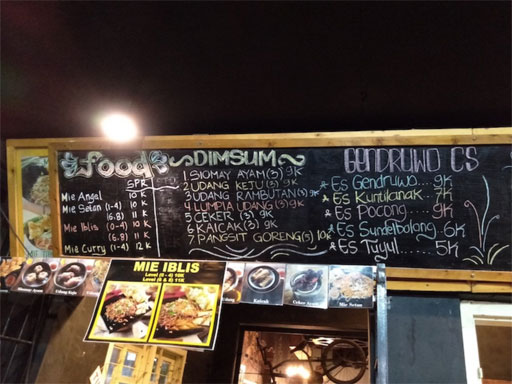 food
SPR
Mie Angel 10 K
Mie Setan (1-4) 10 K
(6.8) 11 K
Mie Iblis (0-4) 10 K
(6.8) 11 K
Mie Curry (1-4) 12 K
DIMSUM
1 SIOMAY AYAM (3) 9K
2 UDANG KEJU (3) 9K
3 UDANG RAMBUTAN (3) 9K
4 LUMPIA UDANG (3) 9K
5 CEKER (3) 9K
6 KAICAK (3) 9K
7 PANGSIT GORENG (5) 10K
GENDRUWO CS
Es Gendruwo.... 9K
Es Kuntilanak 7K
Es Pocong 9K
Es Sundelbolong 6K
Es Tuyul 5K
MIE IBLIS
Level (0 - 4) 10K
Level (6 & 8) 11K
Siomay Ayam
Udang Keju
Kaicak
Ceker Ayam
Mie Setan